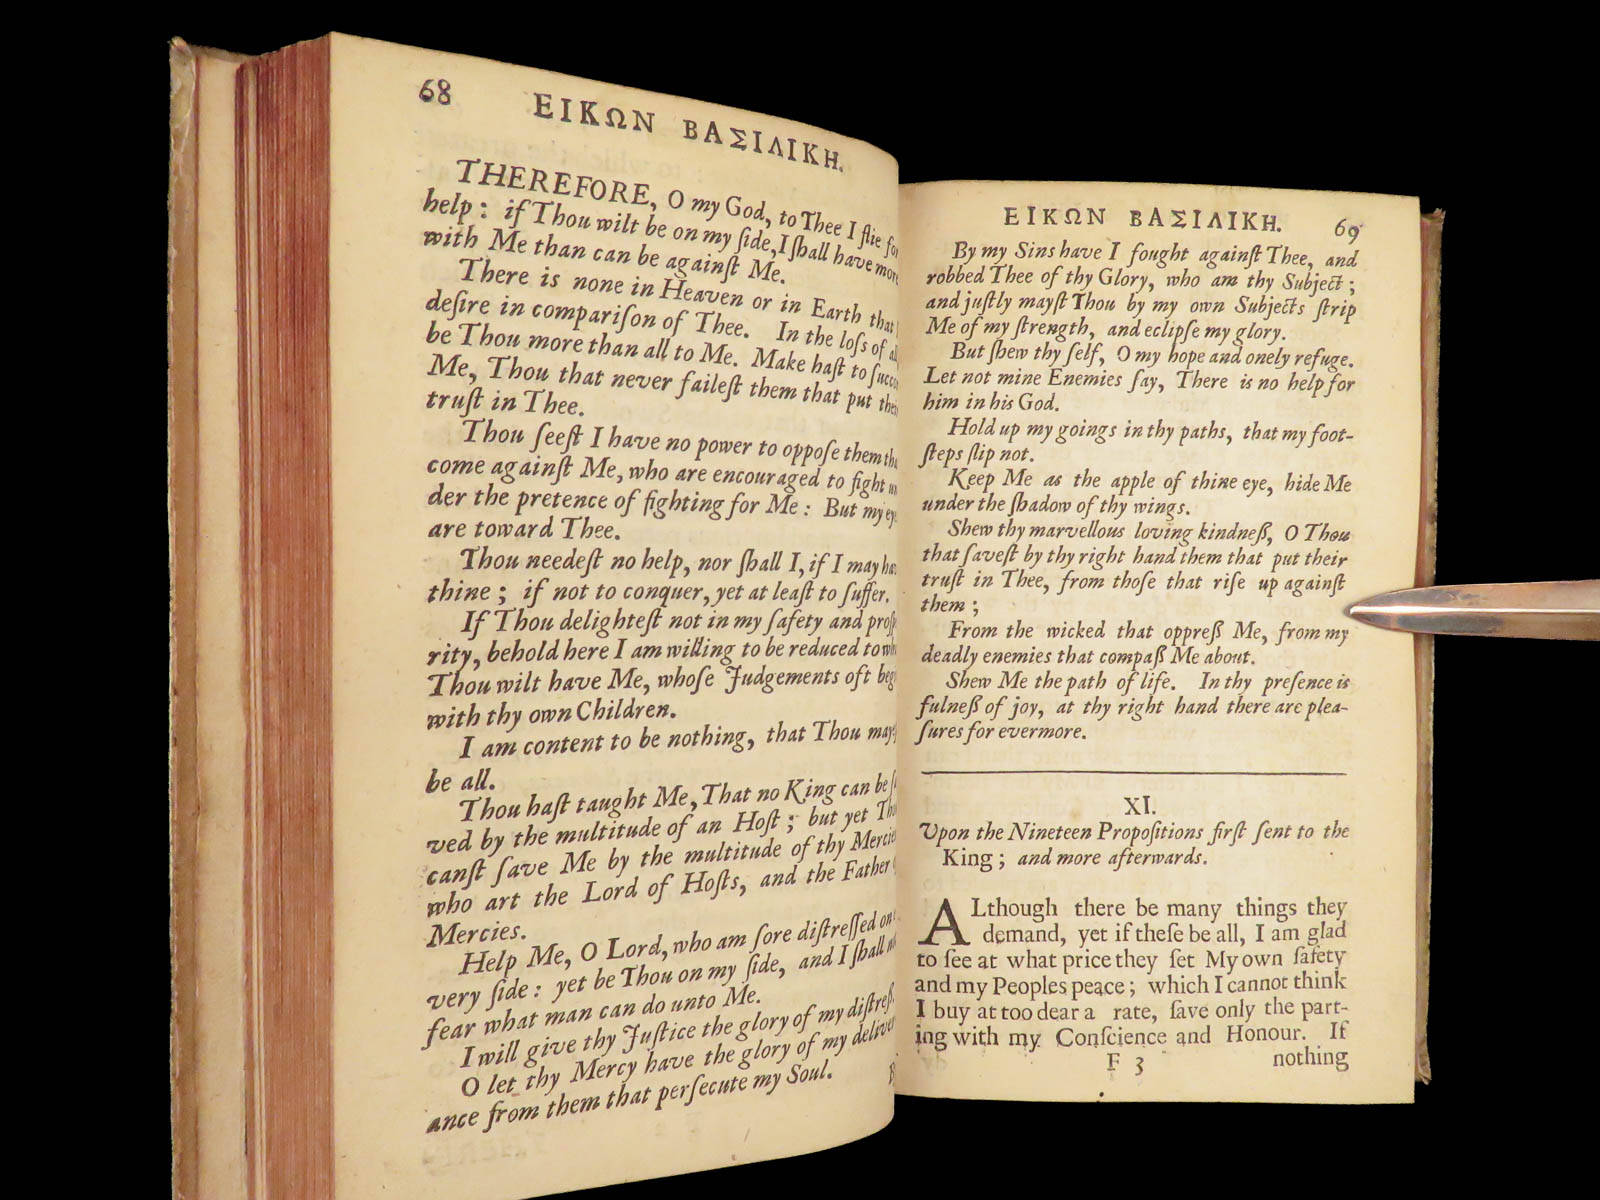 68
ΕΙΚΩΝ ΒΑΣΙΛΙΚΗ.
THEREFORE, O my God, to Thee I flie for
help: if Thou wilt be on my ſide, I ſhall have more
with Me than can be againſt Me.
There is none in Heaven or in Earth that
deſire in compariſon of Thee. In the loſs of
be Thou more than all to Me. Make haſt to
Me, Thou that never faileſt them that put
truſt in Thee.
Thou ſeeſt I have no power to oppoſe them
come againſt Me, who are encouraged to fight
der the pretence of fighting for Me: But my
are toward Thee.
Thou needeſt no help, nor ſhall I, if I may
thine; if not to conquer, yet at leaſt to ſuffer.
If Thou delighteſt not in my ſafety and
rity, behold here I am willing to be reduced to
Thou wilt have Me, whoſe Judgements oft
with thy own Children.
I am content to be nothing, that Thou
be all.
Thou haſt taught Me, That no King can be
ved by the multitude of an Hoſt; but yet
canſt ſave Me by the multitude of thy
who art the Lord of Hoſts, and the Father
Mercies.
Help Me, O Lord, who am ſore diſtreſſed on
very ſide: yet be Thou on my ſide, and I ſhall
fear what man can do unto Me.
I will give thy Juſtice the glory of my
O let thy Mercy have the glory of my
ance from them that perſecute my Soul.
ΕΙΚΩΝ ΒΑΣΙΛΙΚΗ. 69
By my Sins have I fought againſt Thee, and
robbed Thee of thy Glory, who am thy Subject;
and juſtly mayſt Thou by my own Subjects ſtrip
Me of my ſtrength, and eclipſe my glory.
But ſhew thy ſelf, O my hope and onely refuge.
Let not mine Enemies ſay, There is no help for
him in his God.
Hold up my goings in thy paths, that my foot-
ſteps ſlip not.
Keep Me as the apple of thine eye, hide Me
under the ſhadow of thy wings.
Shew thy marvellous loving kindneß, O Thou
that ſaveſt by thy right hand them that put their
truſt in Thee, from thoſe that riſe up againſt
them;
From the wicked that oppreß Me, from my
deadly enemies that compaß Me about.
Shew Me the path of life. In thy preſence is
fulneß of joy, at thy right hand there are plea-
ſures for evermore.
XI.
Upon the Nineteen Propoſitions firſt ſent to the
King; and more afterwards.
ALthough there be many things they
demand, yet if theſe be all, I am glad
to ſee at what price they ſet My own ſafety
and my Peoples peace; which I cannot think
I buy at too dear a rate, ſave only the part-
ing with my Conſcience and Honour. If
F 3 nothing